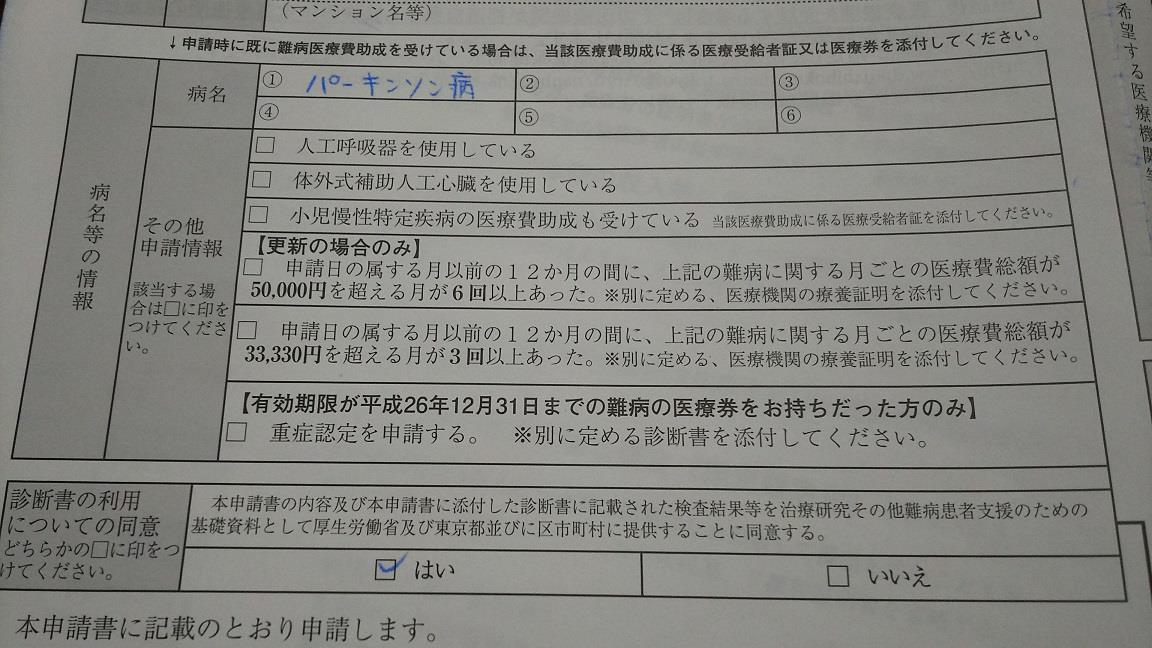 (マンション名等)
↓申請時に既に難病医療費助成を受けている場合は、当該医療費助成に係る医療受給者証又は医療券を添付してください。
希望する医療機関等
病名等の情報
病名
① パーキンソン病
②
③
④
⑤
⑥
その他
申請情報
該当する場
合は□に印を
つけてくださ
い。
□ 人工呼吸器を使用している
□ 体外式補助人工心臓を使用している
□ 小児慢性特定疾病の医療費助成も受けている 当該医療費助成に係る医療受給者証を添付してください。
【更新の場合のみ】
□ 申請日の属する月以前の12か月の間に、上記の難病に関する月ごとの医療費総額が
50,000円を超える月が6回以上あった。※別に定める、医療機関の療養証明を添付してください。
□ 申請日の属する月以前の12か月の間に、上記の難病に関する月ごとの医療費総額が
33,330円を超える月が3回以上あった。※別に定める、医療機関の療養証明を添付してください。
【有効期限が平成26年12月31日までの難病の医療券をお持ちだった方のみ】
□ 重症認定を申請する。 ※別に定める診断書を添付してください。
診断書の利用
についての同意
どちらかの□に印をつ
けてください。
本申請書の内容及び本申請書に添付した診断書に記載された検査結果等を治療研究その他難病患者支援のための
基礎資料として厚生労働省及び東京都並びに区市町村に提供することに同意する。
☑ はい
□ いいえ
本申請書に記載のとおり申請します。